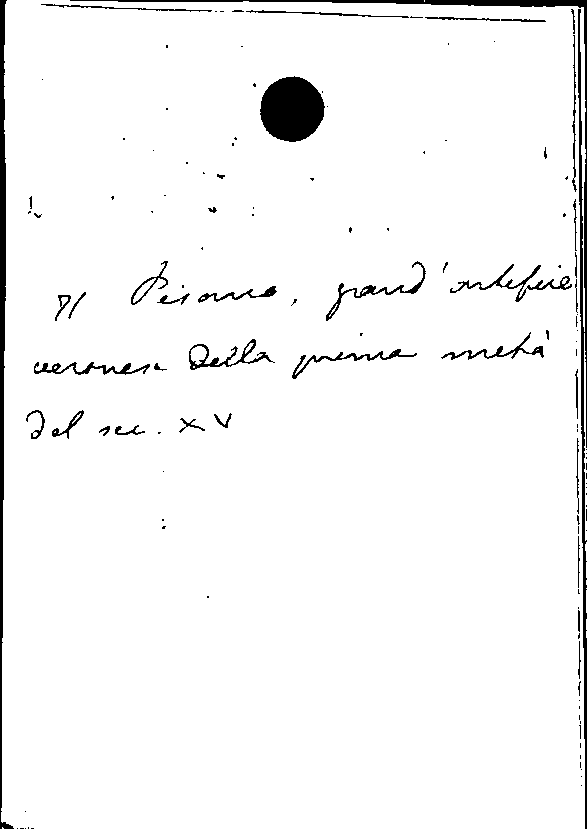 71 Pisano, grand'artefice
veronese della prima metà
del sec. XV